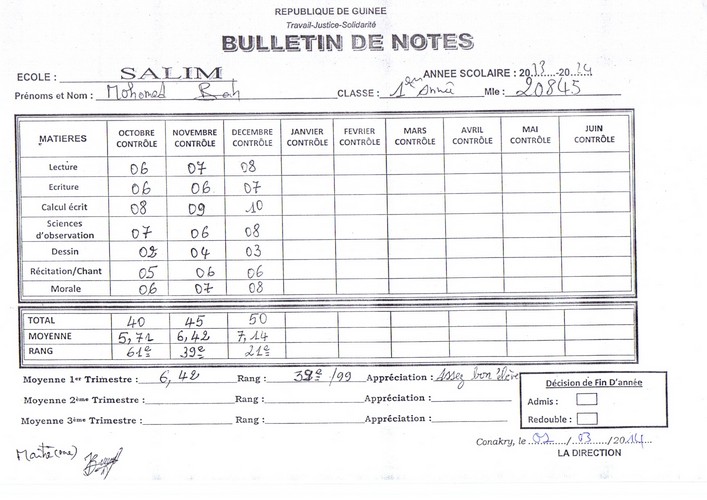 REPUBLIQUE DE GUINEE
Travail-Justice-Solidarité
BULLETIN DE NOTES
ECOLE : SALIM ANNEE SCOLAIRE : 2013-2014
Prénoms et Nom : Mohomed Bah CLASSE : 1ere Année Mle : 20845
MATIERES OCTOBRE CONTRÔLE NOVEMBRE CONTRÔLE DECEMBRE CONTRÔLE JANVIER CONTRÔLE FEVRIER CONTRÔLE MARS CONTRÔLE AVRIL CONTRÔLE MAI CONTRÔLE JUIN CONTRÔLE
Lecture 06 07 08
Ecriture 06 06 07
Calcul écrit 08 09 10
Sciences d'observation 07 06 08
Dessin 02 04 03
Récitation/Chant 05 06 06
Morale 06 07 08
TOTAL 40 45 50
MOYENNE 5,71 6,42 7,14
RANG 61e 39e 21e
Moyenne 1er Trimestre : 6,42 Rang : 39e /99 Appréciation : Assez bon élève
Moyenne 2ème Trimestre : Rang : Appréciation :
Moyenne 3ème Trimestre : Rang : Appréciation :
Décision de Fin D'année
Admis :
Redouble :
Conakry, le 02/03/2014
LA DIRECTION
Maître(sse)